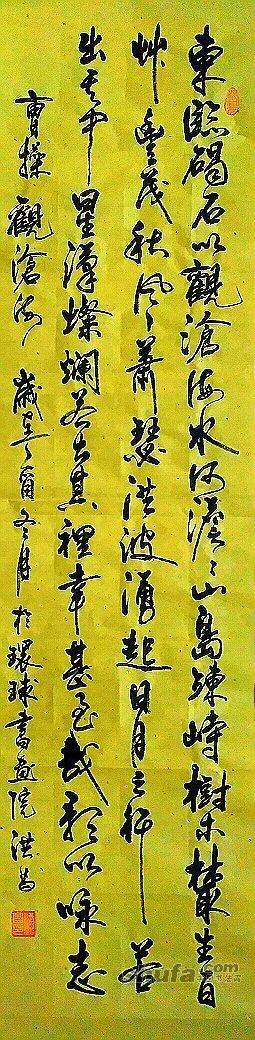 東臨碣石以觀滄海水何澹々山島竦峙樹木叢生百
艸豐茂秋風蕭瑟洪波湧起日月之行若
出其中星漢燦爛若出其裡幸甚至哉歌以咏志
曹操觀滄海歲酉冬月於環球書畫院洪
shufa.com